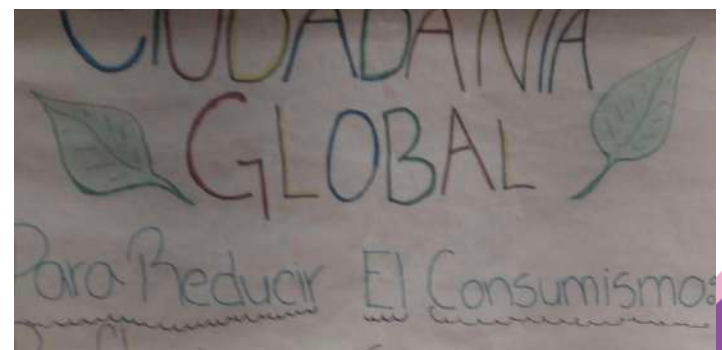 CIUDADANÍA
GLOBAL
Para Reducir El Consumismo: